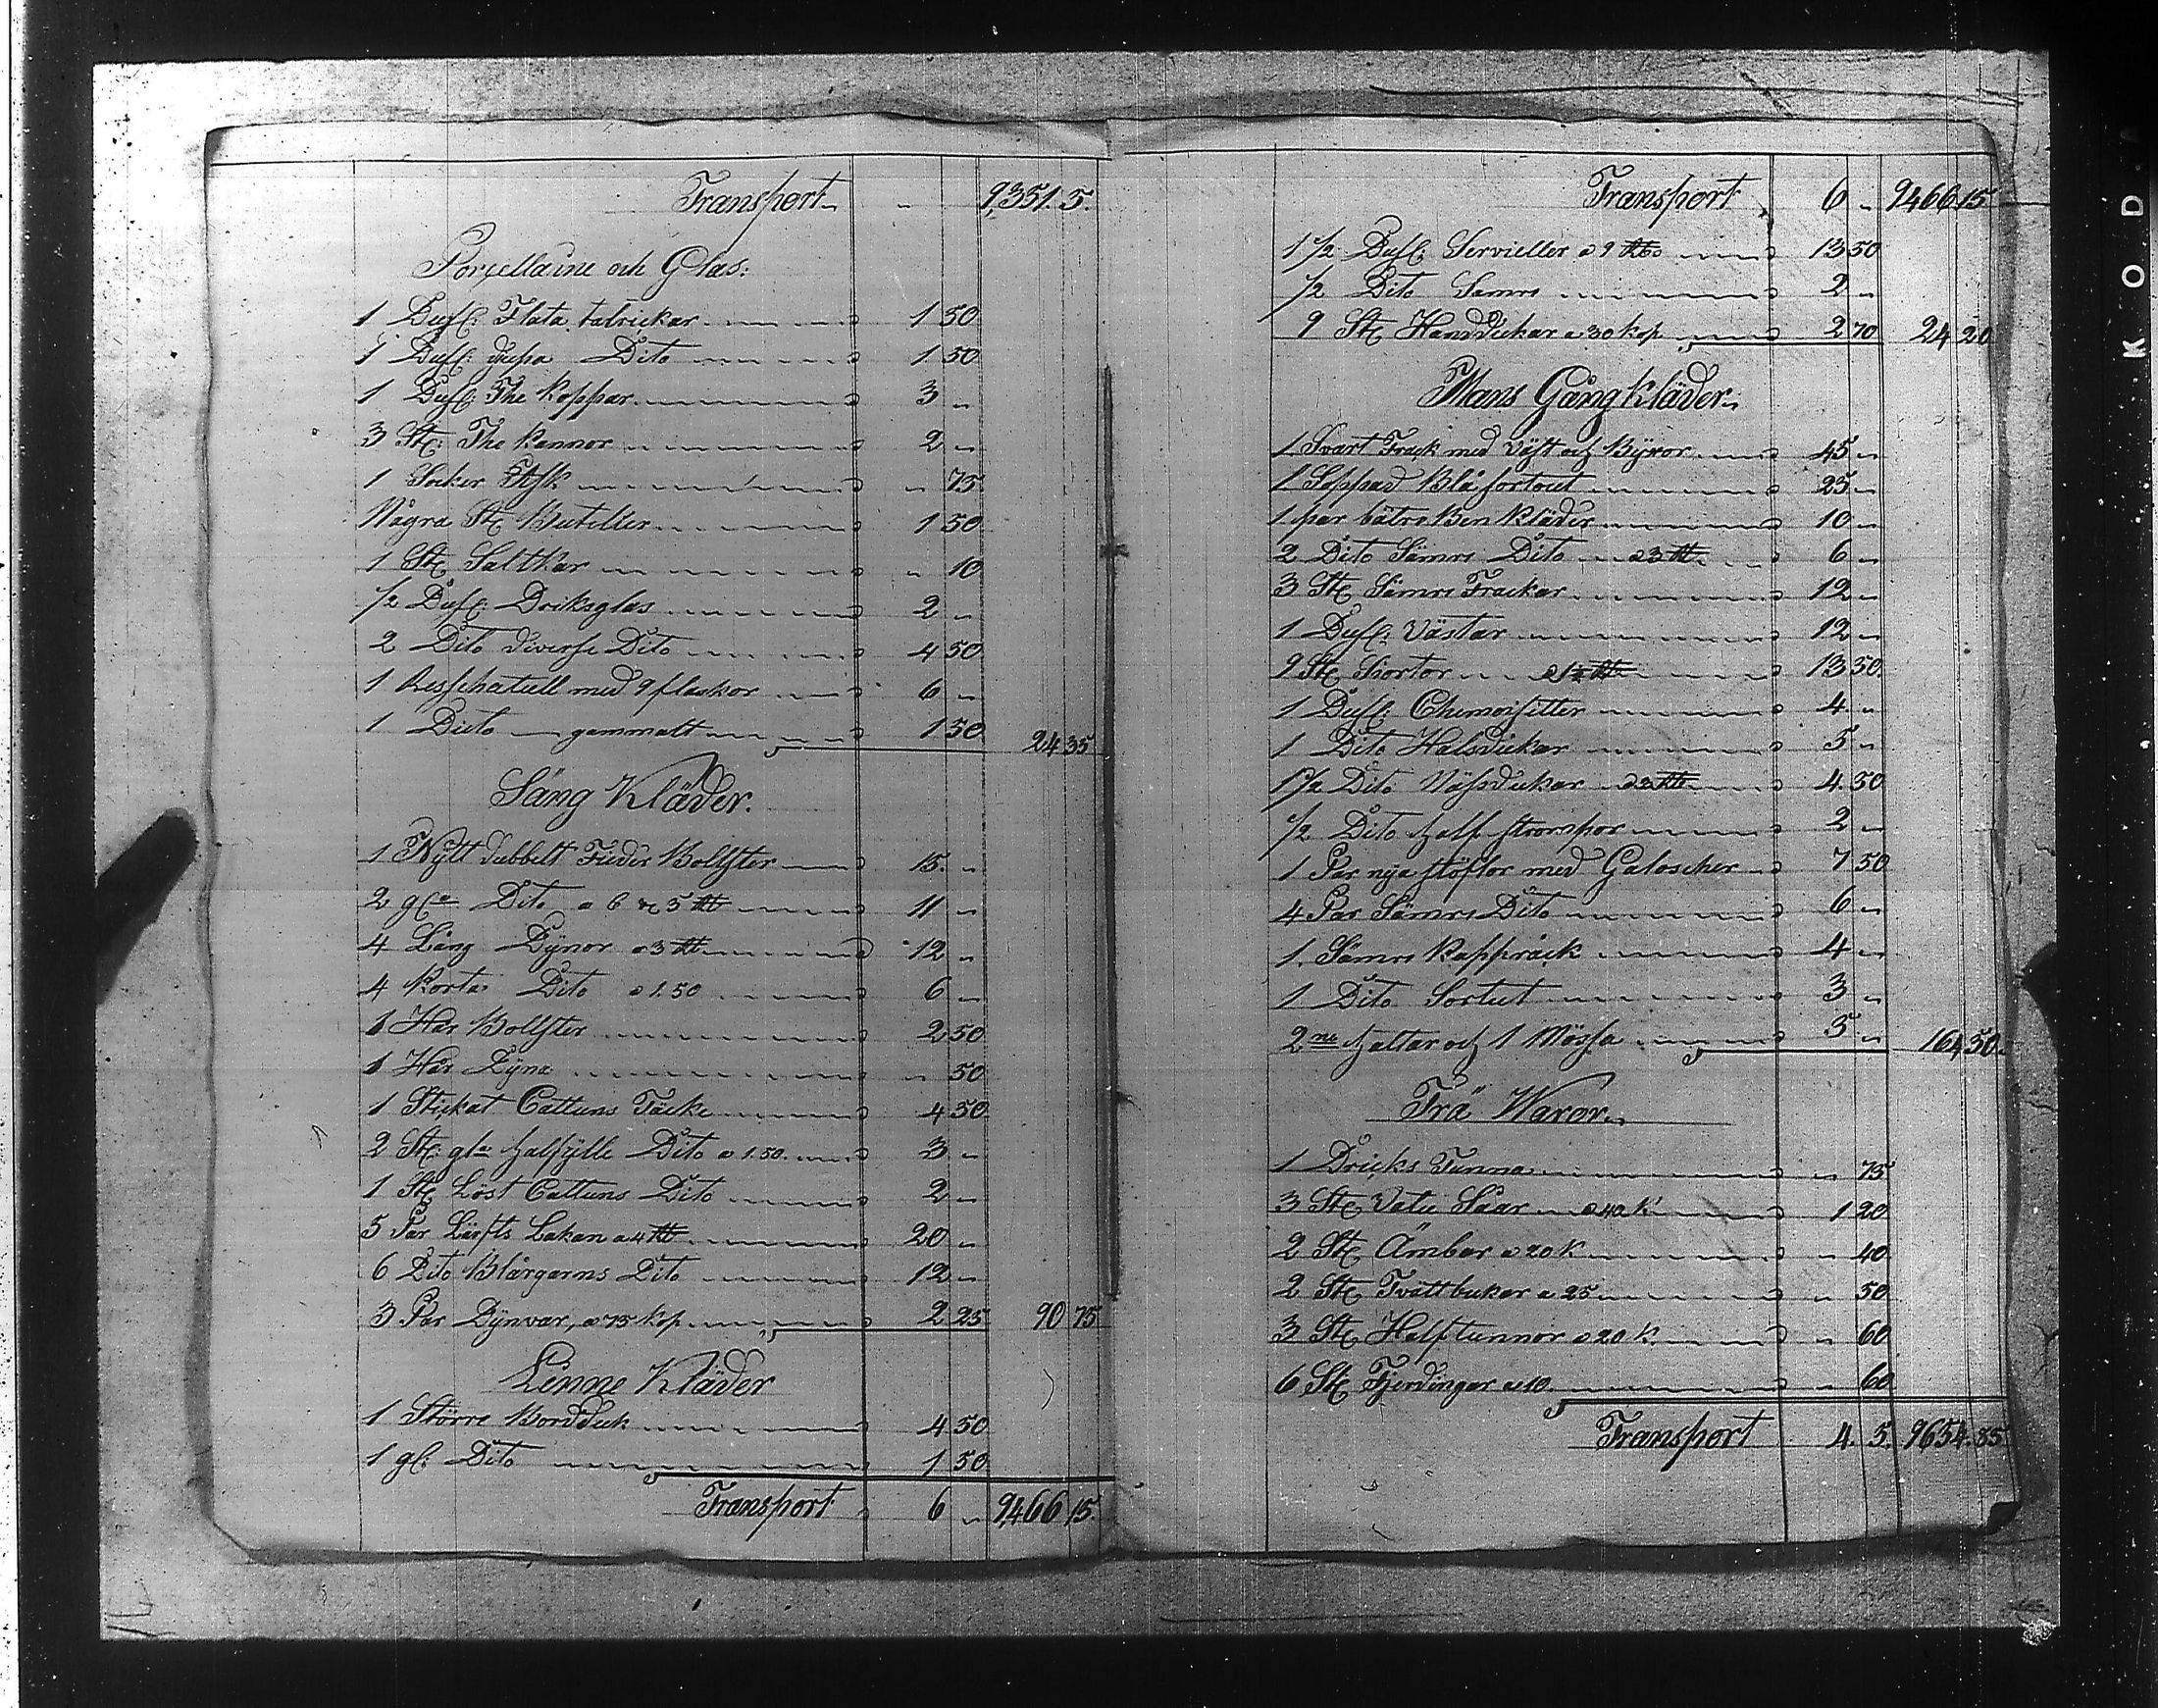 Transport " 9,351. 5.
Porcellaine och Glas:
1 Dus: Flata talrickar 1 50
1 Dus: djupa Dito 1 50
1 Dus: The Koppar 3 "
3 St: The Kannor 2 "
1 Socker Ask " 75
Några St: Buteljer 1 50
1 St: Saltkar " 10
1/2 Dus: Driksglas 2 "
2 Dito diverse Dito 4 50
1 Resschatull med 9 flaskor 6 "
1 Dito gammalt 1 50 24 35
Säng Kläder.
1 Nytt dubbelt Fieder Bollster 15. "
2 gla Dito a 6 & 5 Rb 11 "
4 Lång Dynor a 3 Rb 12 "
4 Korta Dito a 1.50 6 "
1 Hår Bollster 2 50
1 Hår Dyna " 50
1 Stickat Cattuns Täcke 4 50
2 St: gla halfylle Dito a 1.50. 3 "
1 St: Löst Cattuns Dito 2 "
5 Par Lärfts Lakan a 4 Rb 20 "
6 Dito Blårgarns Dito 12 "
3 Par Dynvar, a 75 Kop 2 25 90 75
Linne Kläder
1 Större Bordduk 4 50
1 gl: Dito 1 50
Transport 6 " 9,466 15.
Transport 6 " 9466 15
1 1/2 Dus: Servietter a 9 Rb 13 50
1/2 Dito Sämre 2 "
9 St: Handdukar a 30 Kop 2 70 24 20
Mans Gång Kläder
1 Svart Frack med Väst och Byxor 45 "
1 Loppad Blå sortout 25 "
1 par bätre Ben Kläder 10 "
2 Dito Sämre Dito a 3 Rb 6 "
3 St: Sämre Frackar 12 "
1 Dus: Västar 12 "
9 St: Skortor a 1 1/2 Rb 13 50
1 Dus: Chemoisitter 4 "
1 Dito Halsdukar 5 "
1 1/2 Dito Näsdukar a 3 Rb 4. 50
1/2 Dito half strompor 2 "
1 Par nya stöflor med Galoscher 7 50
4 Par Sämre Dito 6 "
1. Sämre Kappråck 4 "
1 Dito Sortut 3 "
2ne hattar och 1 Mössa 5 " 164 50.
Trä Waror
1 Dricks Tunna " 75
3 St: Vatu Såar a 40 K 1 20
2 St: Ämbar a 20 K " 40
2 St: Tvättbukar a 25 " 50
3 St: Halftunnor a 20 K. " 60
6 St: Fjerdingar a 10. " 60
Transport 4. 5. 9654. 85
KOD